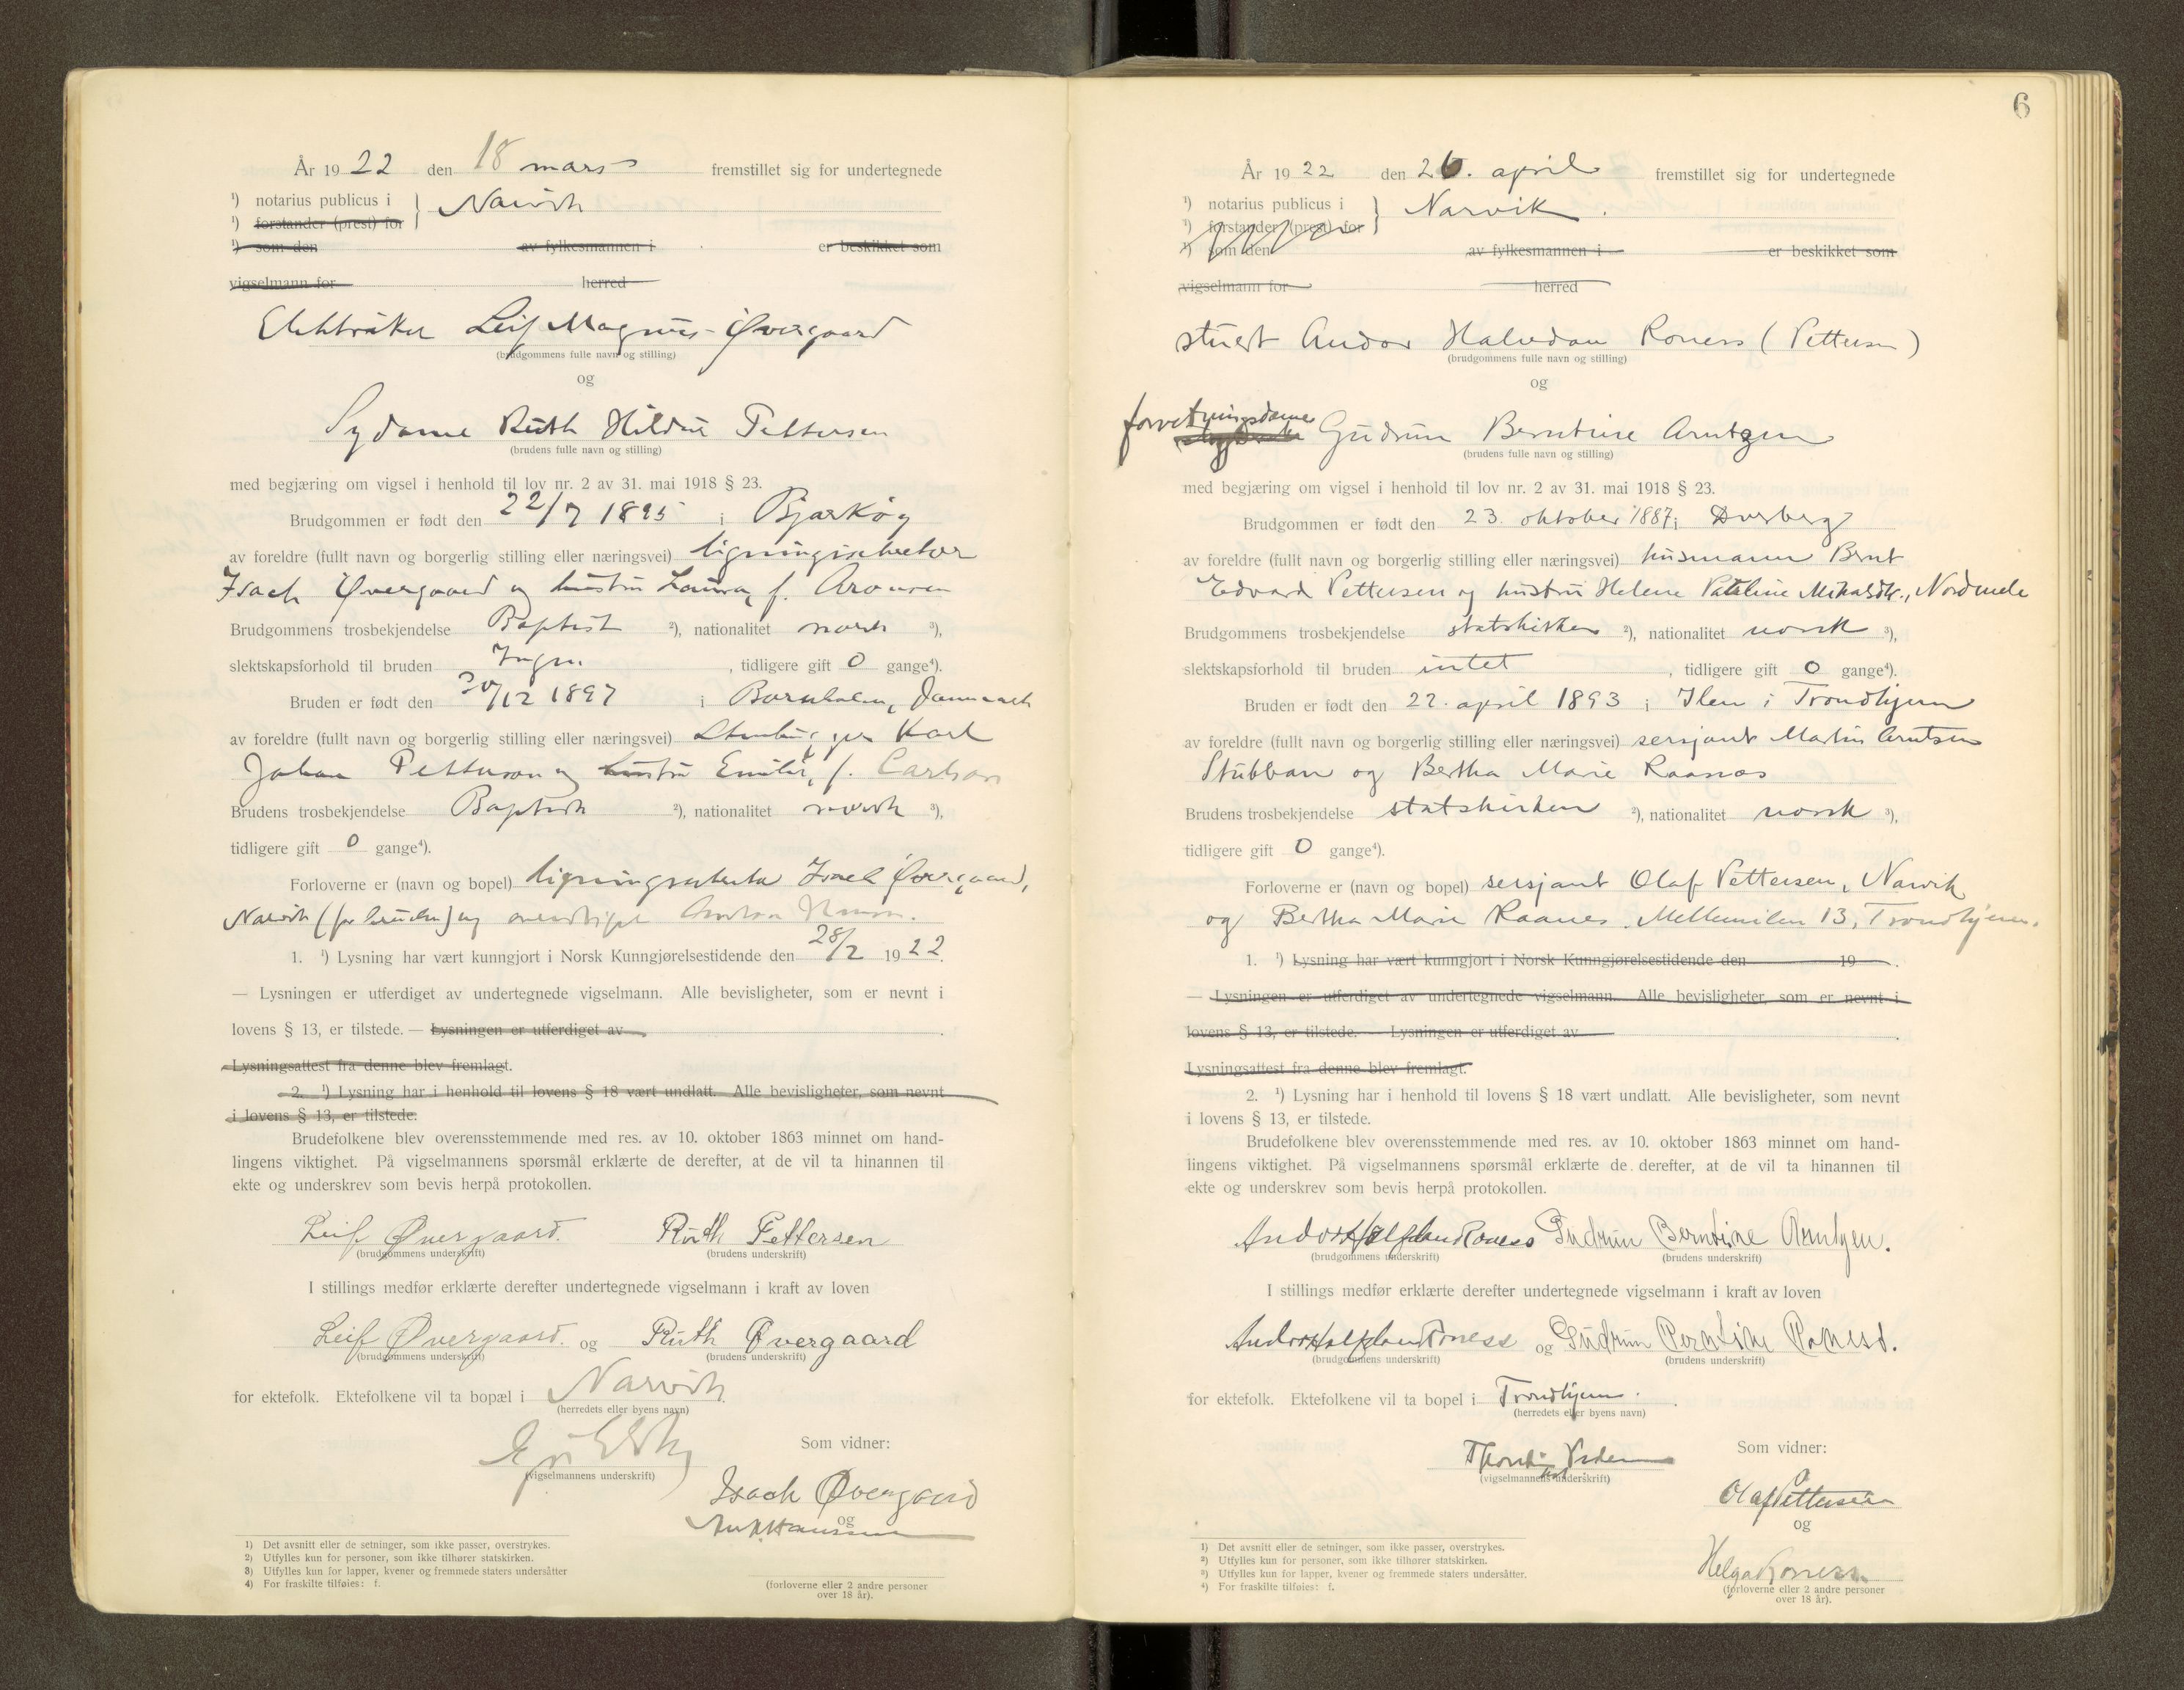 År 1922 den 18 mars fremstillet sig for undertegnede
¹) notarius publicus i } Narvik
¹) forstander (prest) for
¹) som den av fylkesmannen i er beskikket som
vigselmann for herred
Leif Magnus Øvergaard
(brudgommens fulle navn og stilling)
og
Sydame Ruth Hildur Pettersen
(brudens fulle navn og stilling)
med begjæring om vigsel i henhold til lov nr. 2 av 31. mai 1918 § 23.
Brudgommen er født den 22/7 1895 i Bjarkøy
av foreldre (fullt navn og borgerlig stilling eller næringsvei) ligningssekretær
Isach Øvergaard og hustru Laura, f. Aronsen
Brudgommens trosbekjendelse Baptist ²), nationalitet norsk ³),
slektskapsforhold til bruden Ingen , tidligere gift 0 gange⁴).
Bruden er født den 30/12 1897 i Bornholm, Danmark
av foreldre (fullt navn og borgerlig stilling eller næringsvei) Karl
Johan Petterson og hustru Emilie, f. Carlson
Brudens trosbekjendelse Baptist ²), nationalitet norsk ³),
tidligere gift 0 gange⁴).
Forloverne er (navn og bopel) ligningssekretær Isach Øvergaard,
Narvik (for bruden) og
1. ¹) Lysning har vært kunngjort i Norsk Kunngjørelsestidende den 28/2 1922.
— Lysningen er utferdiget av undertegnede vigselmann. Alle bevisligheter, som er nevnt i
lovens § 13, er tilstede. — Lysningen er utferdiget av .
Lysningsattest fra denne blev fremlagt.
2. ¹) Lysning har i henhold til lovens § 18 vært undlatt. Alle bevisligheter, som nevnt
i lovens § 13, er tilstede.
Brudefolkene blev overensstemmende med res. av 10. oktober 1863 minnet om hand-
lingens viktighet. På vigselmannens spørsmål erklærte de derefter, at de vil ta hinannen til
ekte og underskrev som bevis herpå protokollen.
Leif Øvergaard. Ruth Pettersen
(brudgommens underskrift) (brudens underskrift)
I stillings medfør erklærte derefter undertegnede vigselmann i kraft av loven
Leif Øvergaard. og Ruth Øvergaard
(brudgommens underskrift) (brudens underskrift)
for ektefolk. Ektefolkene vil ta bopæl i Narvik.
(herredets eller byens navn)
Som vidner:
(vigselmannens underskrift)
Isach Øvergaard
og
(forloverne eller 2 andre personer
over 18 år).
1) Det avsnitt eller de setninger, som ikke passer, overstrykes.
2) Utfylles kun for personer, som ikke tilhører statskirken.
3) Utfylles kun for lapper, kvener og fremmede staters undersåtter
4) For fraskilte tilføies: f.
6
År 1922 den 26. april fremstillet sig for undertegnede
¹) notarius publicus i } Narvik.
¹) forstander (prest) for
¹) som den av fylkesmannen i er beskikket som
vigselmann for herred
stuert Andor Halvdan Roness (Pettersen)
(brudgommens fulle navn og stilling)
og
forretningsdame Gudrun Berntine Arntzen
(brudens fulle navn og stilling)
med begjæring om vigsel i henhold til lov nr. 2 av 31. mai 1918 § 23.
Brudgommen er født den 23. oktober 1887 i Dverberg
av foreldre (fullt navn og borgerlig stilling eller næringsvei) husmann Bernt
Edvard Pettersen og hustru Helene , Nordmele
Brudgommens trosbekjendelse statskirken ²), nationalitet norsk ³),
slektskapsforhold til bruden intet , tidligere gift 0 gange⁴).
Bruden er født den 22. april 1893 i Ilen i Trondhjem
av foreldre (fullt navn og borgerlig stilling eller næringsvei) sersjant Martin Arntsen
Stubban og Bertha Marie Raanes
Brudens trosbekjendelse statskirken ²), nationalitet norsk ³),
tidligere gift 0 gange⁴).
Forloverne er (navn og bopel) sersjant Olaf Pettersen, Narvik
og Bertha Marie Raanes, Mellemilen 13, Trondhjem.
1. ¹) Lysning har vært kunngjort i Norsk Kunngjørelsestidende den 19 .
— Lysningen er utferdiget av undertegnede vigselmann. Alle bevisligheter, som er nevnt i
lovens § 13, er tilstede. — Lysningen er utferdiget av .
Lysningsattest fra denne blev fremlagt.
2. ¹) Lysning har i henhold til lovens § 18 vært undlatt. Alle bevisligheter, som nevnt
i lovens § 13, er tilstede.
Brudefolkene blev overensstemmende med res. av 10. oktober 1863 minnet om hand-
lingens viktighet. På vigselmannens spørsmål erklærte de derefter, at de vil ta hinannen til
ekte og underskrev som bevis herpå protokollen.
Andor Halfdan Roness Gudrun Berntine Arntzen.
(brudgommens underskrift) (brudens underskrift)
I stillings medfør erklærte derefter undertegnede vigselmann i kraft av loven
Andor Halfdan Roness og Gudrun Berntine Roness.
(brudgommens underskrift) (brudens underskrift)
for ektefolk. Ektefolkene vil ta bopel i Trondhjem.
(herredets eller byens navn)
Som vidner:
(vigselmannens underskrift)
Olaf Pettersen
og
Helga Roness
(forloverne eller 2 andre personer
over 18 år).
¹) Det avsnitt eller de setninger, som ikke passer, overstrykes.
²) Utfylles kun for personer, som ikke tilhører statskirken.
³) Utfylles kun for lapper, kvener og fremmede staters undersåtter.
⁴) For fraskilte tilføies: f.